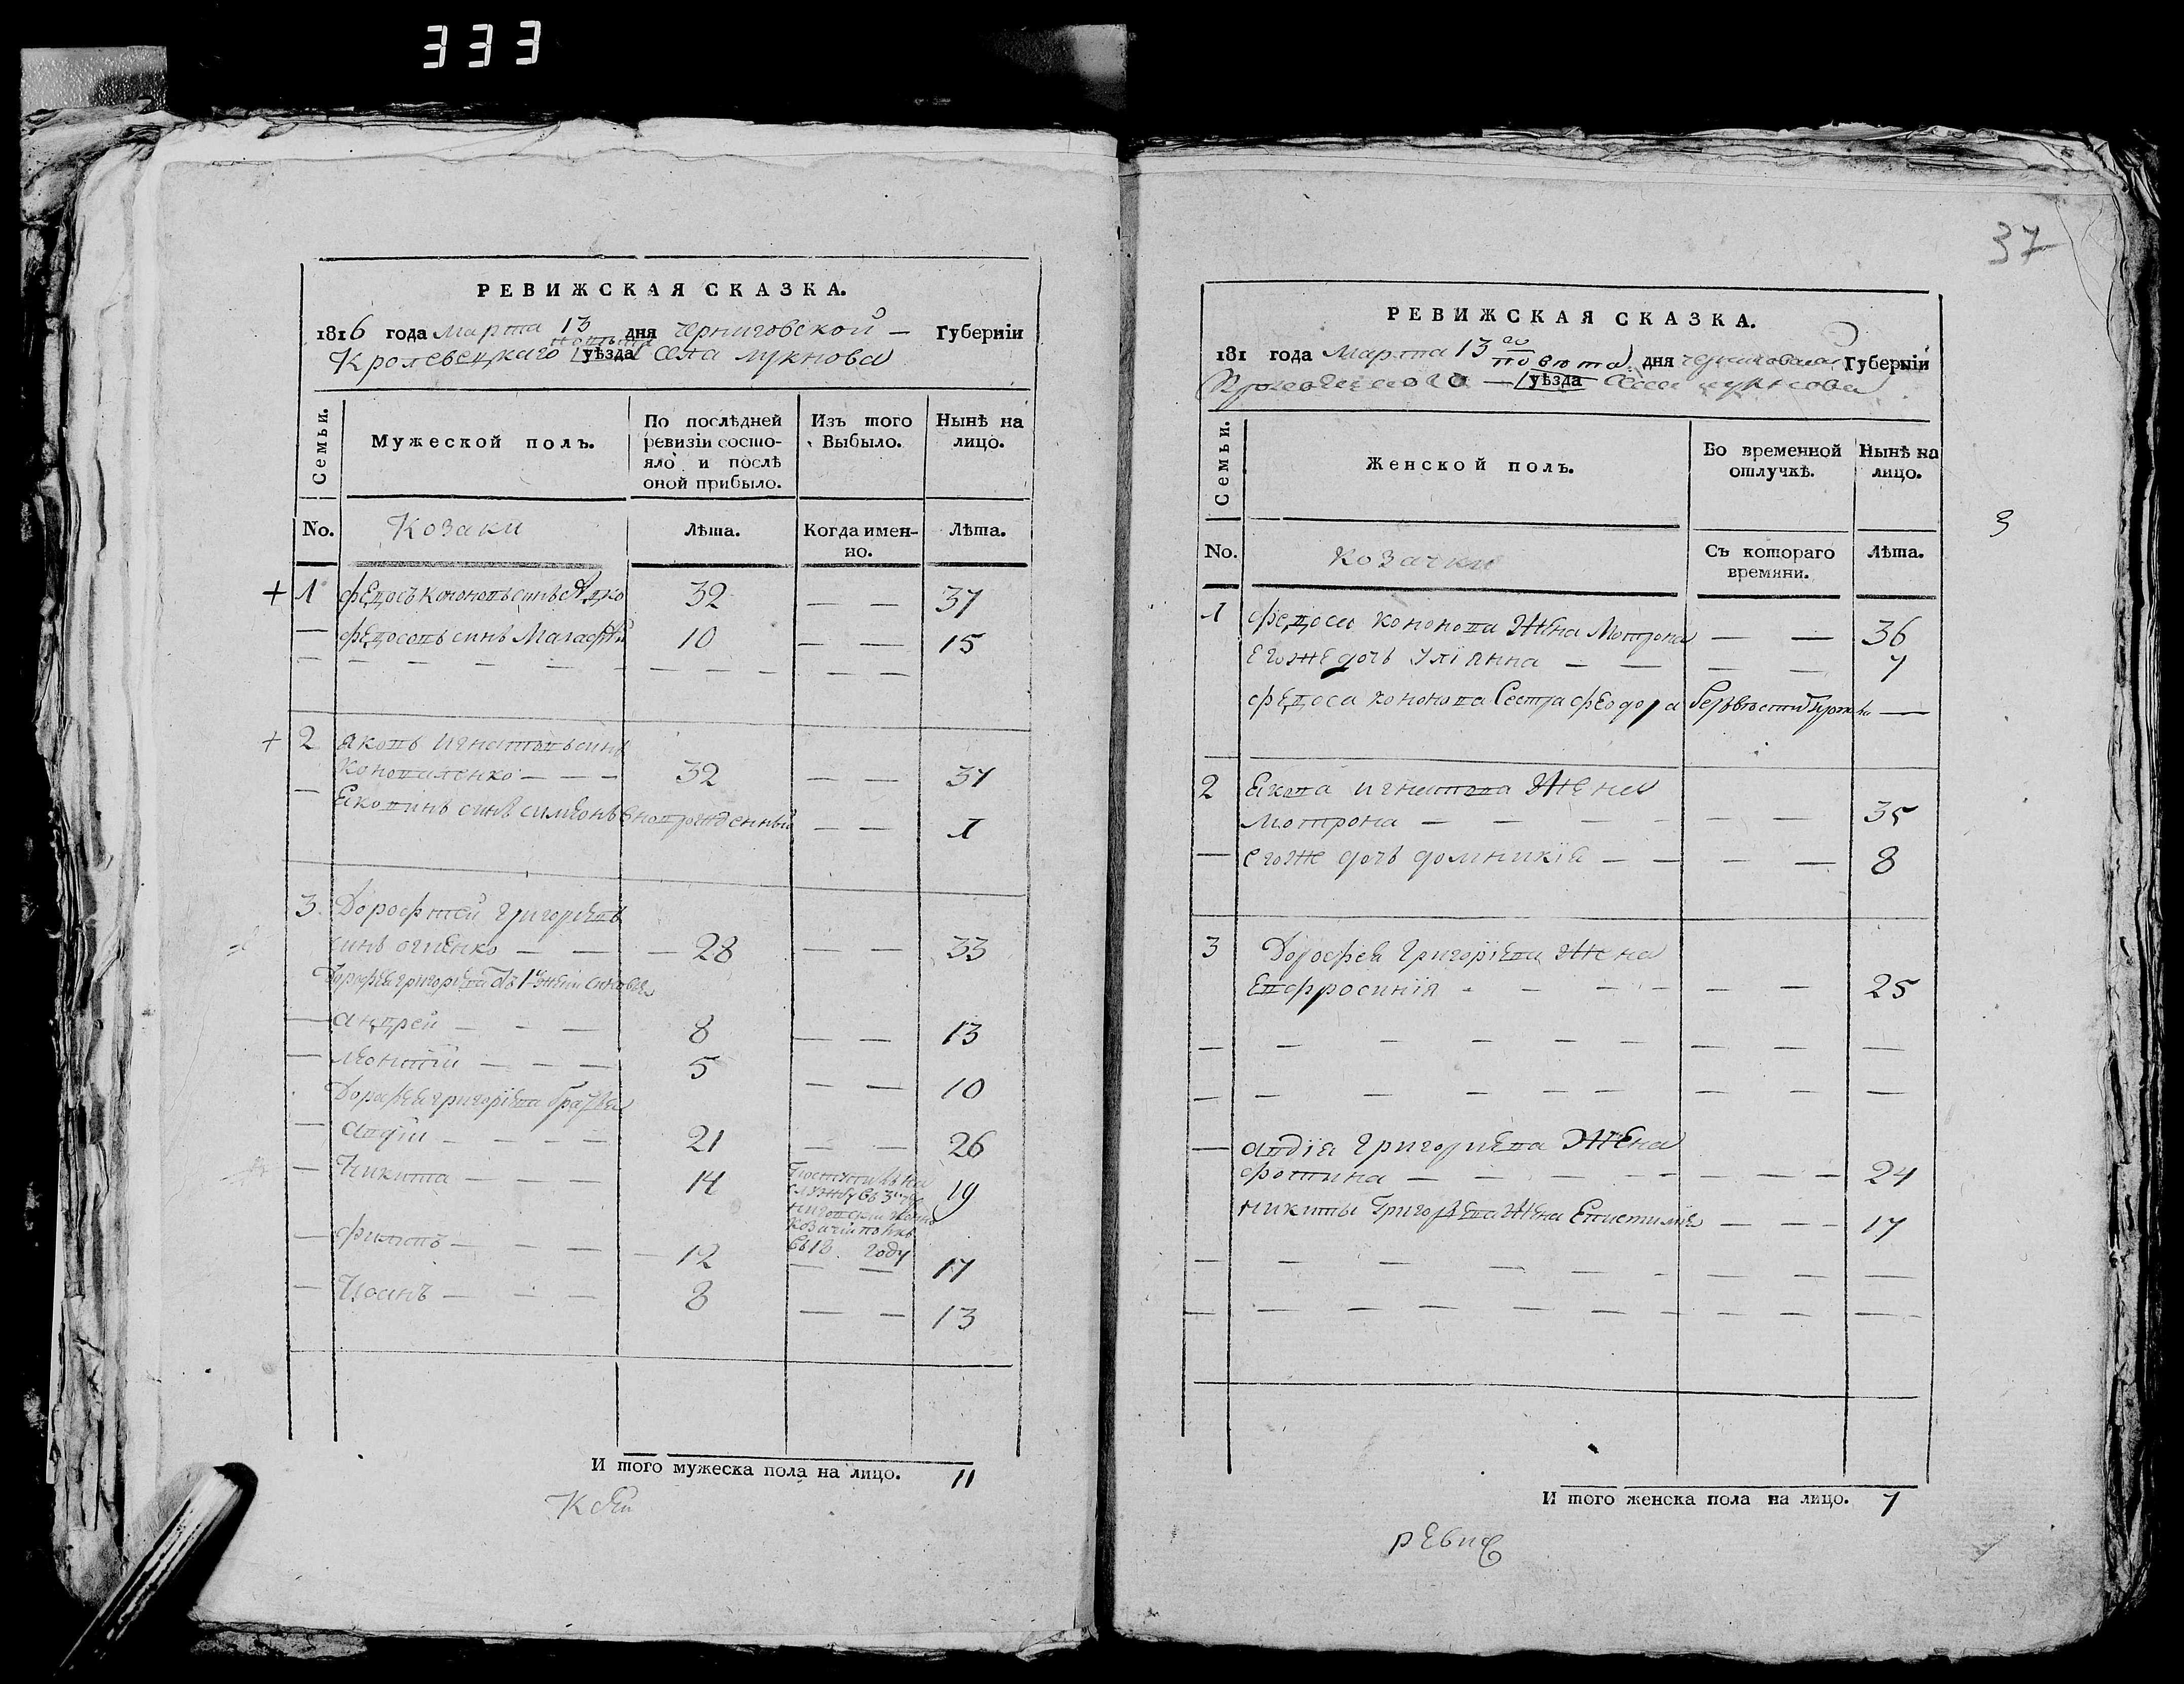 333
РЕВИЖСКАЯ СКАЗКА.
1816 года Марта 13 дня Черниговской — Губерніи
повѣта
Кролевецкаго уѣзда села лукнова
Семьи.
Мужеской полъ.
По послѣдней ревизіи состояло и послѣ оной прибыло.
Изъ того Выбыло.
Нынѣ на лицо.
No.
Козаки
Лѣта.
Когда именно.
Лѣта.
+ 1 федосъ Кононовъ синъ 32 — — 37
— федосовъ синъ 10 — — 15
+ 2 яковъ игнатовъ синъ
Коноваленко — — — 32 — — 37
— Яковинъ синъ симеонъ новорожденный — — 1
3 Дорофтей григориевъ
синъ огиенко — — — 28 — — 33
Дорофея григориева отъ 1й жени синовья
— андрей — — — 8 — — 13
— леонтий — — — 5 — — 10
Дорофея григориева братья
— авдїи — — — — 21 — — 26
— Никита — — — 14 19
козачий полкъ
въ 18 году
— филипъ — — — 12 — — 17
— Иванъ — — — 8 — — 13
И того мужеска пола на лицо. 11
37
РЕВИЖСКАЯ СКАЗКА.
181 года Марта 13 го дня Черниговской Губерніи
повѣта
Кролевецкаго — уѣзда села лукнова
Семьи.
Женской полъ.
Во временной отлучкѣ.
Нынѣ на лицо.
No.
козачки
Съ котораго времяни.
Лѣта.
1 федоса кононова Жена Мотрона — — 36
его же дочь Улїянна — — — — 7
федоса кононова Сестра феодора —
2 Якова игнатова Жена
мотрона — — — — — — 35
— его же дочь домникїя — — — — 8
3 Дорофея Григорїева Жена
Евфросинїя - - — - — — 25
— авдїя Григориева Жена
фотина — — — — — — 24
никиты Григорьева Жена Епистимия — — - 17
И того женска пола на лицо. 7